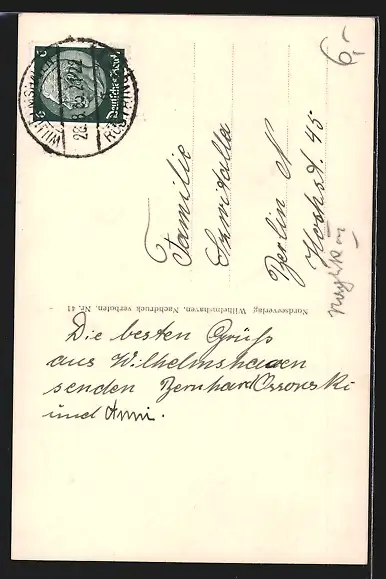 6,-
WILHELMSHAVEN
RÜSTRINGEN
Deutsches Reich
6
Familie
Berlin N
Hochst. 45
Nordseeverlag Wilhelmshaven, Nachdruck verboten. Nr. 41
Die besten Grüß
aus Wilhelmshaven
senden Bernhard Ossowski
und Anni.